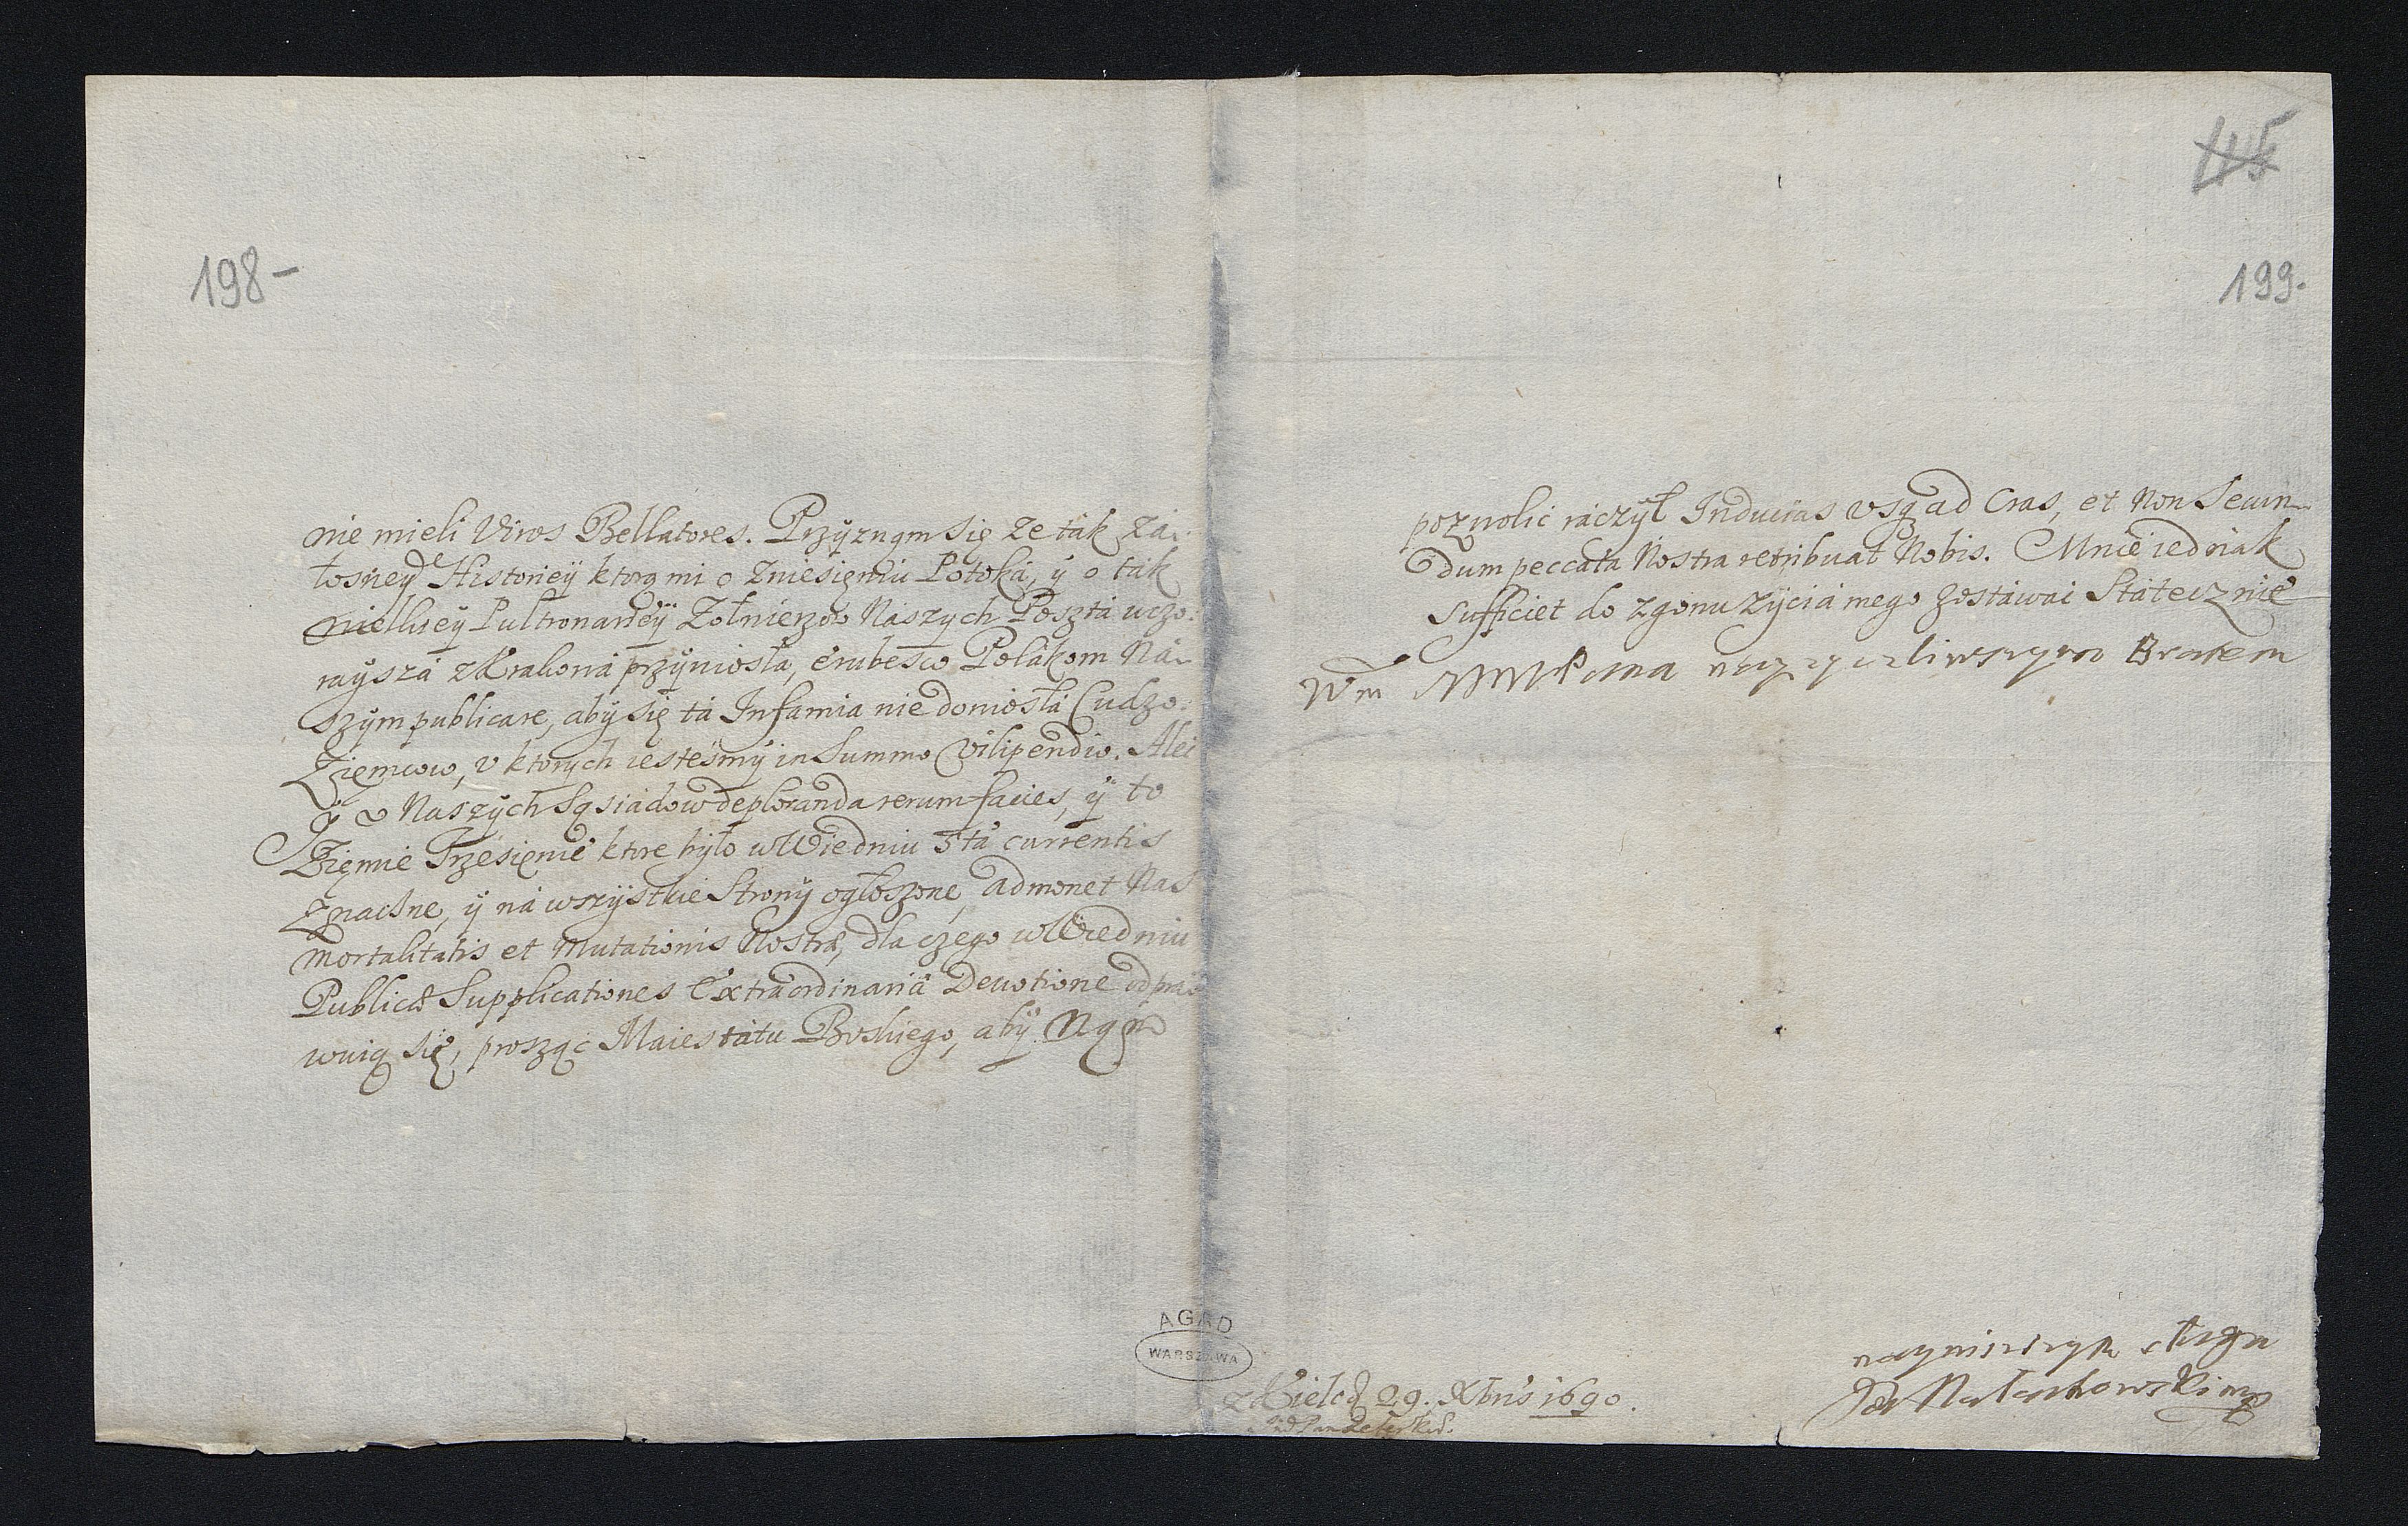 198-
nie mieli Viros Bellatores. Przyznąm się ze ták zá-
łosney Historiey ktorą mi o zniesięniu Potoká, y o ták
wielkiey Pultronariey Zołnierzow Nászych Poszta wczo-
raysza z Krakowá przyniosła, erubesco Polakom Ná-
szym publicare, aby się tá Infamia nie doniosła Cudzo-
Zięmcow, v ktorych iestesmy in Summo Vilipendio. Ale
Y v Naszych Sąsiadow deploranda rerum facies, y to
Zięmie Trzesięnie ktore było w Wiedniu 5ta currentis
Znaczne, y ná wszystkie Strony ogłoszone, admonet Nas
mortalitatis et Mutationis Nostræ, dla czego w Wiedniu
Publicæ Supplicationes Extraordinaria Deuotione odpra-
wuią się, prosząc Maiestatu Boskiego, aby Nąm
115
199.
pozwolic raczył Inducias vsq ad Cras, et Non Secun-
dum peccata Nostra retribuat Nobis. Mnie iednak
sufficiet do zgonu Zycia mego zostáwac Státecznie
Wm MMPana nayzyczliwszym Bratem
AGAD
WARSZAWA
z Kielc 29. Xbris 1690.
nayniszszym sługą
Jan Małachowski mp